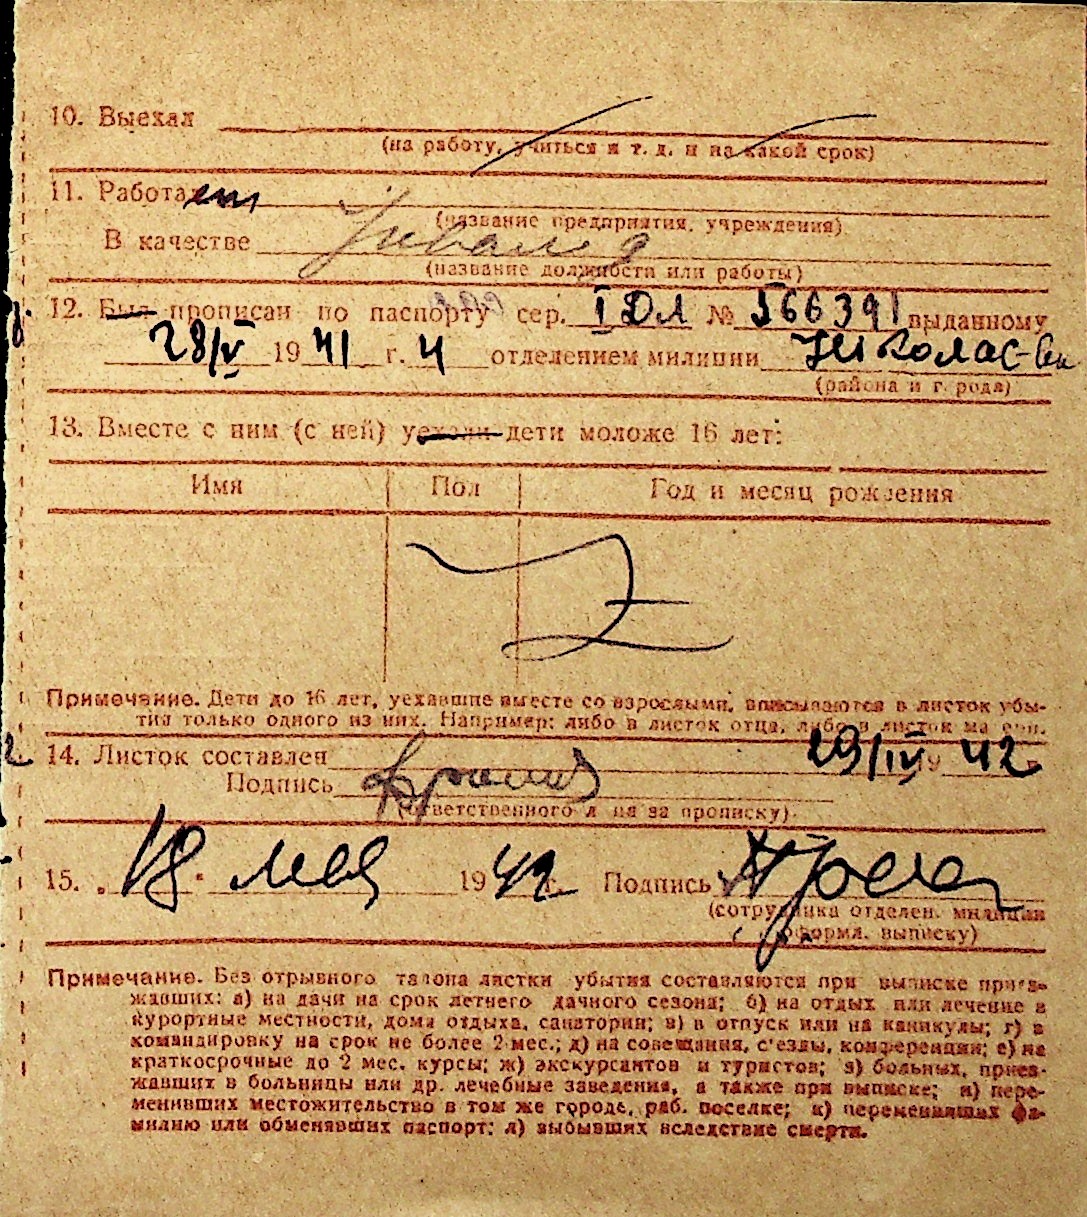 10. Выехал
(на работу, учиться и т. д. и на какой срок)
11. Работает
(название предприятия, учреждения)
В качестве Инвалид
(название должности или работы)
12. Был прописан по паспорту сер. I ДЛ № 566391 выданному
28/V 1941 г. 4 отделением милиции
(района и города)
13. Вместе с ним (с ней) уехали дети моложе 16 лет:
Имя Пол Год и месяц рождения
Z
Примечание. Дети до 16 лет, уехавшие вместе со взрослыми, вписываются в листок убы-
тия только одного из них. Например: либо в листок отца, либо в листок матери.
14. Листок составлен 29/IV 42
Подпись
(ответственного лица за прописку).
15. „18“ мая 1942 г. Подпись
(сотрудника отделен. милиции
оформл. выписку)
Примечание. Без отрывного талона листки убытия составляются при выписке приез-
жавших: а) на дачи на срок летнего дачного сезона; б) на отдых или лечение в
курортные местности, дома отдыха, санатории; в) в отпуск или на каникулы; г) в
командировку на срок не более 2 мес.; д) на совещания, с'езды, конференции; е) на
краткосрочные до 2 мес. курсы; ж) экскурсантов и туристов; з) больных, приез-
жавших в больницы или др. лечебные заведения, а также при выписке; и) пере-
менивших местожительство в том же городе, раб. поселке; к) переменивших фа-
милию или обменявших паспорт; л) выбывших вследствие смерти.